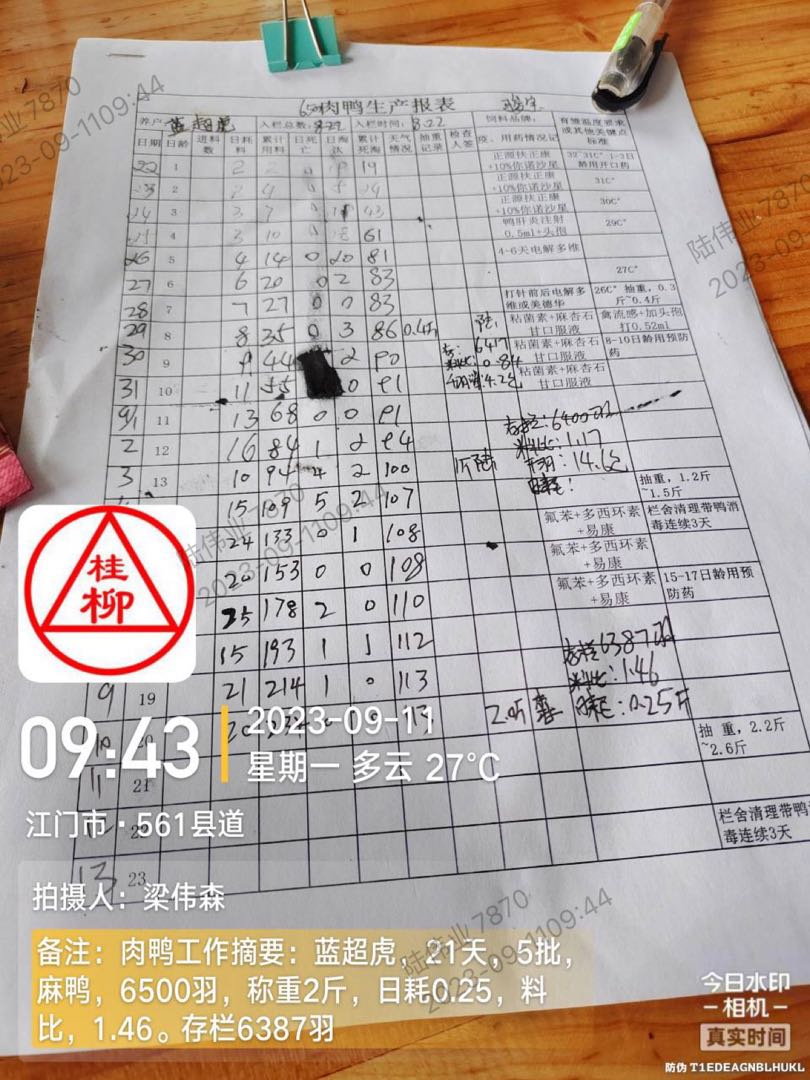 650肉鸭生产报表
养户 蓝超虎 入栏总数: 入栏时间: 8.22 饲料品牌, 育雏温度要求或其他关键点标准
日期 日龄 进料数 日耗料 累计用料 日死亡 日淘汰 累计死淘 天气情况 抽重记录 检查人签 疫、用药情况记
22 1 2 19 正源扶正康+10%你诺沙星 32~31C° 1-3日龄用开口药
23 2 2 4 24 正源扶正康+10%你诺沙星 31C°
24 3 3 7 43 正源扶正康+10%你诺沙星 30C°
25 4 3 10 61 鸭肝炎注射0.5ml+头孢 29C°
26 5 4 14 0 20 81 4-6天电解多维
27 6 6 20 2 83 27C°
28 7 7 27 0 0 83 打针前后电解多维或美德华 26C° 抽重,0.3斤~0.4斤
29 8 8 35 0 3 86 0.4斤 陆 粘菌素+麻杏石甘口服液 禽流感+加头孢打0.52ml
30 9 9 44 2 90 6417 0.84 粘菌素+麻杏石甘口服液 8-10日龄用预防药
31 10 11 55 0 91 4.2 粘菌素+麻杏石甘口服液
9/1 11 13 68 0 0 91 存栏:6400羽
2 12 16 84 1 2 94 料比:1.17
3 13 10 94 4 2 100 1斤 陆 14.1 日耗:
15 109 5 2 107 抽重,1.2斤~1.5斤
24 133 0 1 108 氟苯+多西环素+易康 栏舍清理带鸭消毒连续3天
20 153 0 0 108 氟苯+多西环素+易康
25 178 2 0 110 氟苯+多西环素+易康 15-17日龄用预防药
15 193 1 1 112 存栏6387羽
9 19 21 214 1 0 113 料比:1.46
10 20 20 113 2.0斤 日耗:0.25斤
11 21 抽重,2.2斤~2.6斤
12 22
13 23 栏舍清理带鸭消毒连续3天
桂柳
09:43
2023-09-11
星期一 多云 27℃
江门市·561县道
拍摄人:梁伟森
备注:肉鸭工作摘要:蓝超虎,21天,5批,
麻鸭,6500羽,称重2斤,日耗0.25,料
比,1.46。存栏6387羽
今日水印
相机
真实时间
防伪 T1EDEAGNBLHUKL
陆伟业 7870
2023-09-1109:44